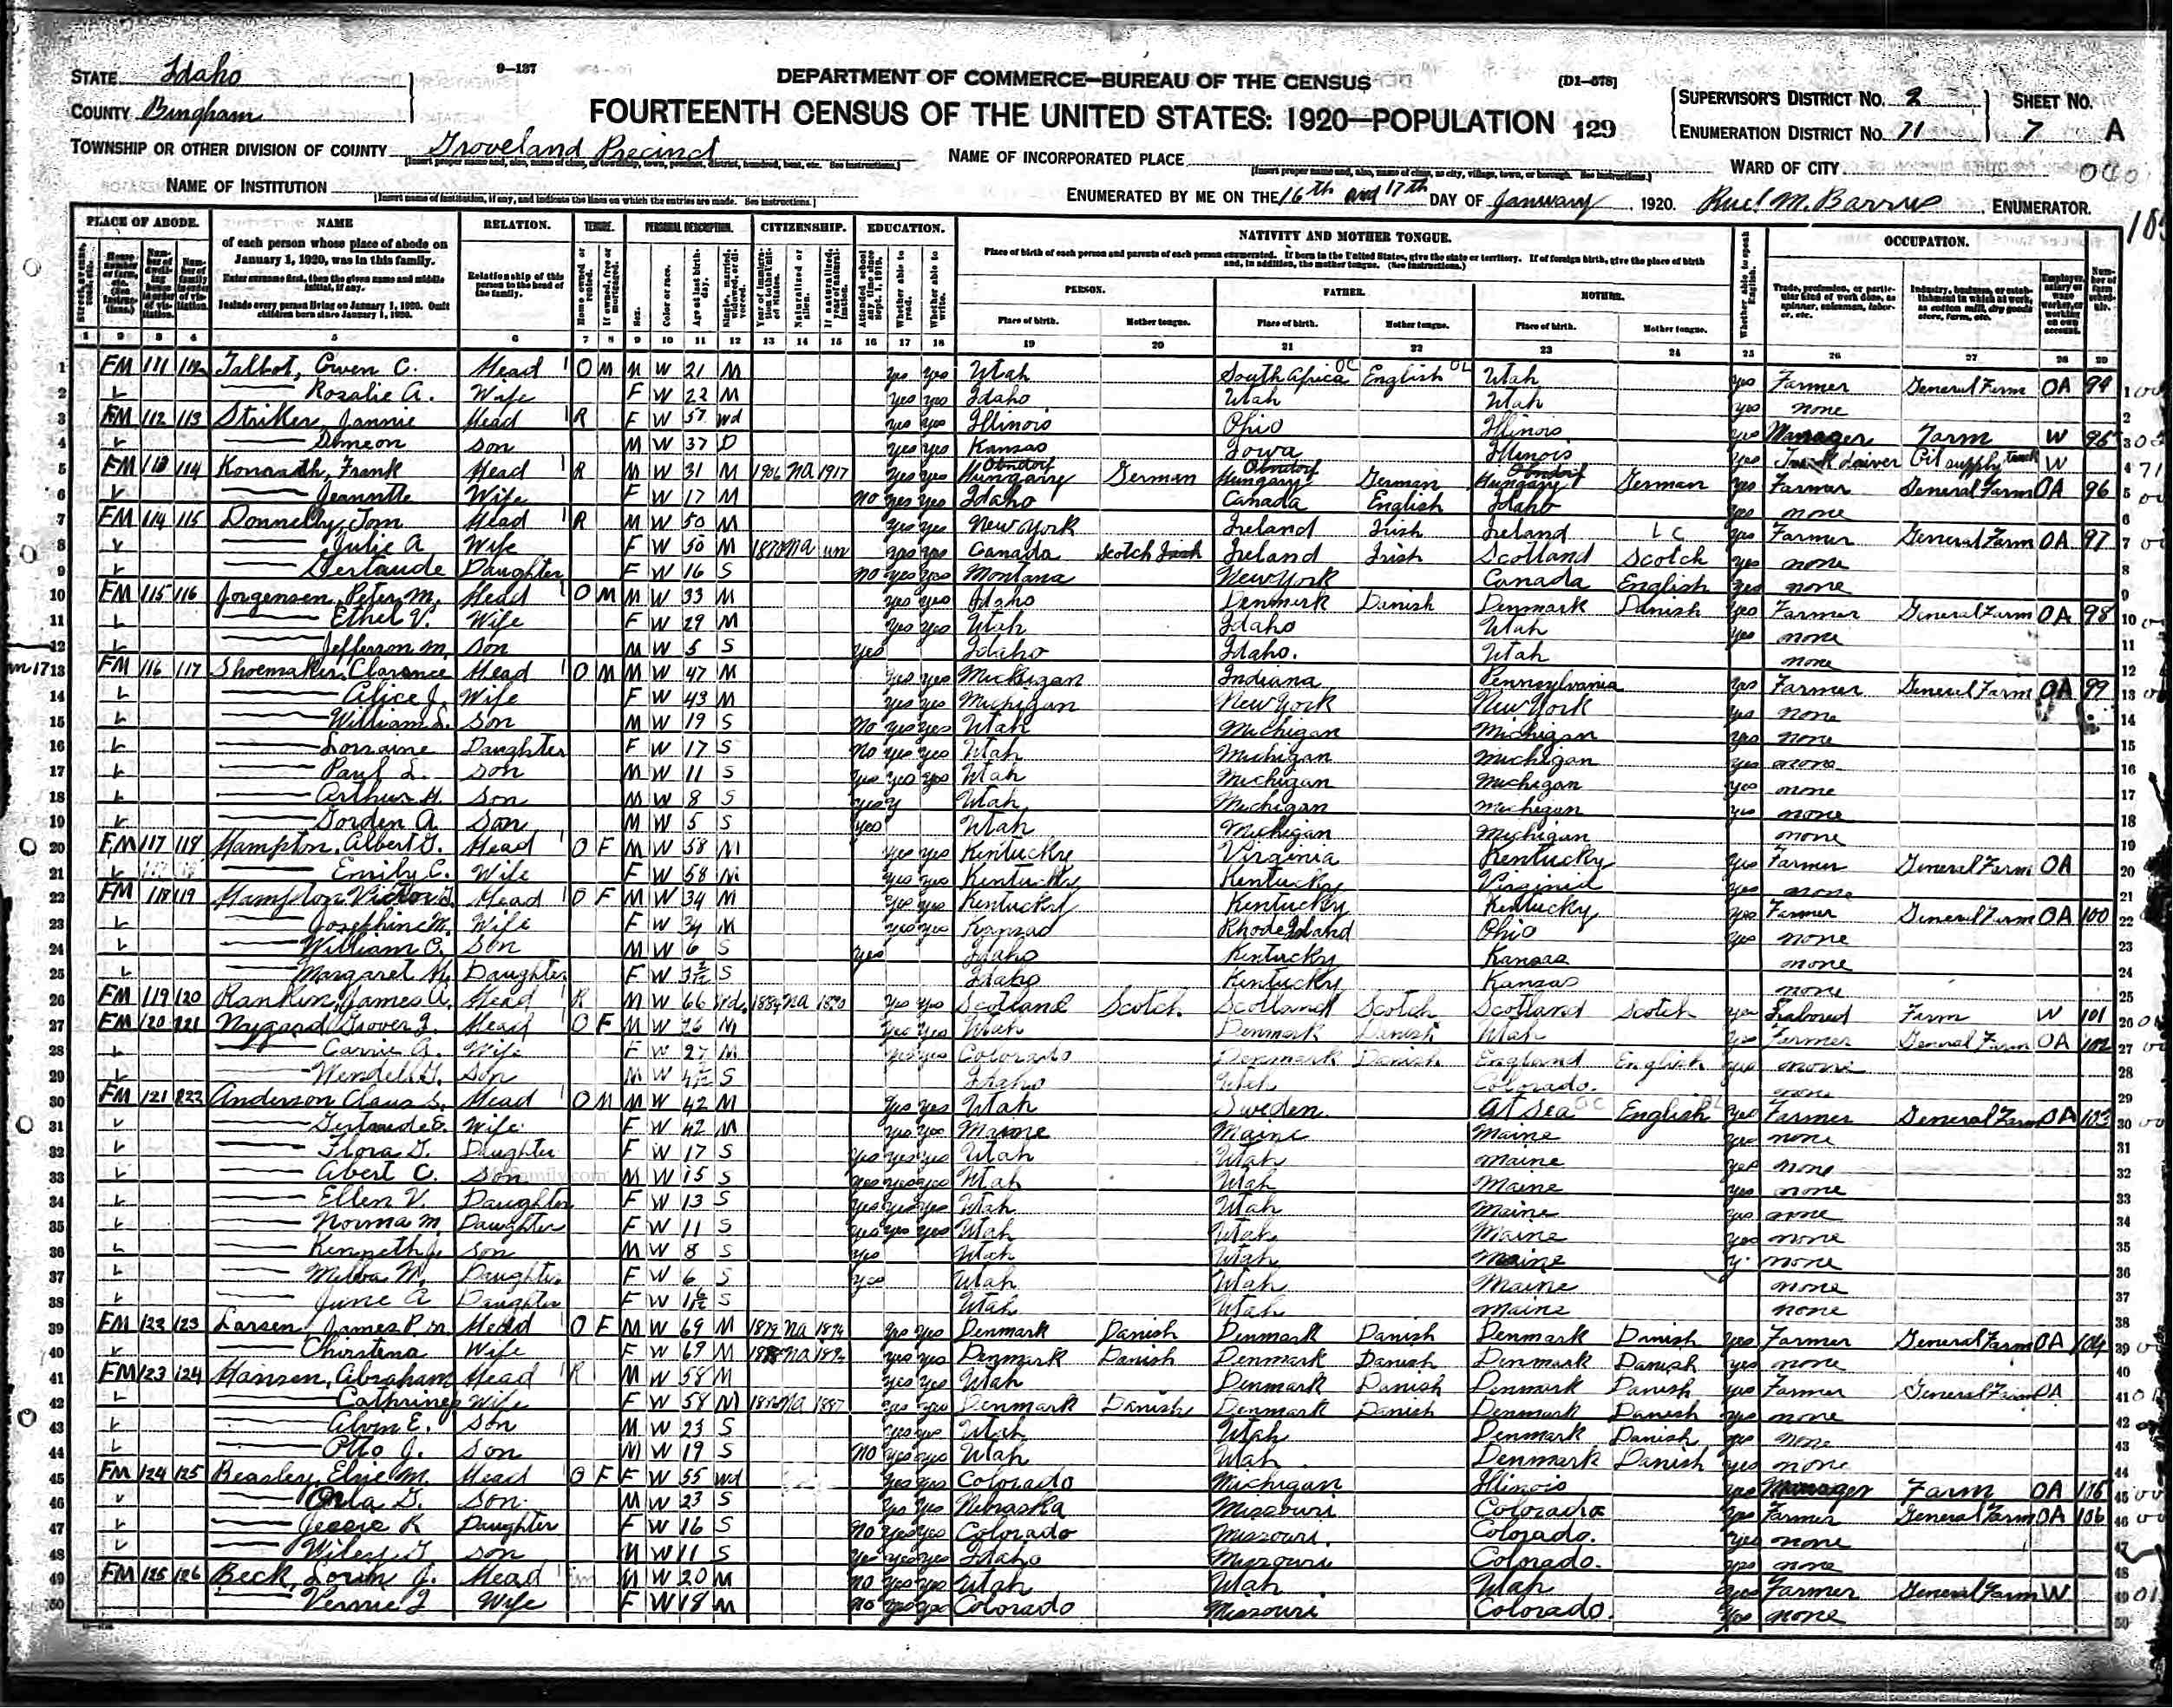 STATE Idaho
9-137
DEPARTMENT OF COMMERCE—BUREAU OF THE CENSUS
[D1-678]
COUNTY Bingham
FOURTEENTH CENSUS OF THE UNITED STATES: 1920—POPULATION 129
SUPERVISOR'S DISTRICT No. 2
SHEET No.
ENUMERATION DISTRICT No. 71
7 A
TOWNSHIP OR OTHER DIVISION OF COUNTY Groveland Precinct
NAME OF INCORPORATED PLACE
WARD OF CITY
NAME OF INSTITUTION
ENUMERATED BY ME ON THE 16th and 17th DAY OF January, 1920. Ruel M. Barrus, ENUMERATOR.
PLACE OF ABODE. NAME RELATION. TENURE. PERSONAL DESCRIPTION. CITIZENSHIP. EDUCATION. NATIVITY AND MOTHER TONGUE. OCCUPATION.
of each person whose place of abode on January 1, 1920, was in this family.
Enter surname first, then the given name and middle initial, if any.
Include every person living on January 1, 1920. Omit children born since January 1, 1920.
Relationship of this person to the head of the family.
Place of birth of each person and parents of each person enumerated. If born in the United States, give the state or territory. If of foreign birth, give the place of birth and, in addition, the mother tongue. (See Instructions.)
PERSON. FATHER. MOTHER.
Place of birth. Mother tongue. Place of birth. Mother tongue. Place of birth. Mother tongue.
1 2 3 4 5 6 7 8 9 10 11 12 13 14 15 16 17 18 19 20 21 22 23 24 25 26 27 28 29
1 FM 111 112 Talbot, Owen C. Head 1 O M M W 21 M yes yes Utah South Africa English Utah yes Farmer General Farm OA 94
2 Rosalie A. Wife F W 22 M yes yes Idaho Utah Utah yes none
3 FM 112 113 Striker, Jannie Head 1 R F W 57 wd yes yes Illinois Ohio Illinois yes Manager Farm W 95
4 Simeon son M W 37 D yes yes Kansas Iowa Illinois yes Truck driver Oil supply truck W
5 FM 113 114 Konrath, Frank Head 1 R M W 31 M 1906 na 1917 yes yes Hungary German Hungary German Hungary German yes Farmer General Farm OA 96
6 Jeannette Wife F W 17 M No yes yes Idaho Canada English Idaho yes none
7 FM 114 115 Donnelly, Tom Head 1 R M W 50 M yes yes New York Ireland Irish Ireland yes Farmer General Farm OA 97
8 Julie A Wife F W 50 M 1870 na un yes yes Canada Scotch Irish Ireland Irish Scotland Scotch yes none
9 Gertaude Daughter F W 16 S No yes yes Montana New York Canada English yes none
10 FM 115 116 Jorgensen, Peter M. Head 1 O M M W 33 M yes yes Idaho Denmark Danish Denmark Danish yes Farmer General Farm OA 98
11 Ethel V. Wife F W 29 M yes yes Utah Idaho Utah yes none
12 Jefferson M. son M W 5 S yes Idaho Idaho. Utah none
13 FM 116 117 Shoemaker, Clarence Head 1 O M M W 47 M yes yes Michigan Indiana Pennsylvania yes Farmer General Farm OA 99
14 Alice J. Wife F W 43 M yes yes Michigan New York New York yes none
15 William L. son M W 19 S No yes yes Utah Michigan Michigan yes none
16 Lorraine Daughter F W 17 S No yes yes Utah Michigan Michigan yes none
17 Paul L. son M W 11 S yes yes yes Utah Michigan Michigan yes none
18 Arthur H. Son M W 8 S yes y Utah Michigan Michigan yes none
19 Gorden A. Son M W 5 S yes Utah Michigan Michigan none
20 FM 117 118 Hampton, Albert G. Head 1 O F M W 58 M yes yes Kentucky Virginia Kentucky yes Farmer General Farm OA
21 Emily C. Wife F W 58 M yes yes Kentucky Kentucky Virginia yes none
22 FM 118 119 Hampton Victor G. Head 1 O F M W 34 M yes yes Kentucky Kentucky Kentucky yes Farmer General Farm OA 100
23 Josephine M. Wife F W 34 M yes yes Kansas Rhode Island Ohio yes none
24 William O. Son M W 6 S yes Idaho Kentucky Kansas none
25 Margaret Daughter F W S Idaho Kentucky Kansas none
26 FM 119 120 Rankin, James A. Head 1 R M W 66 Wd. na yes yes Scotland Scotch Scotland Scotch Scotland Scotch yes Labored Farm W 101
27 FM 120 121 Nygard Grover J. Head 1 O F M W 26 M yes yes Utah Denmark Danish Utah yes Farmer General Farm OA 102
28 Carrie A. Wife F W 27 M yes yes Colorado Denmark Danish England English yes none
29 Wendell G. Son M W S Idaho Utah Colorado. none
30 FM 121 122 Anderson Claus S. Head 1 O M M W 42 M yes yes Utah Sweden At Sea English yes Farmer General Farm OA 103
31 Gertrude E. Wife F W 42 M yes yes Maine Maine Maine yes none
32 Flora G. Daughter F W 17 S yes yes yes Utah Utah Maine yes none
33 Abert C. Son M W 15 S yes yes yes Utah Utah Maine yes none
34 Ellen V. Daughter F W 13 S yes yes yes Utah Utah Maine yes none
35 Norma M. Daughter F W 11 S yes yes yes Utah Utah Maine yes none
36 Kenneth J. Son M W 8 S yes Utah Utah Maine y. none
37 Melba M. Daughter F W 6 S yes Utah Utah Maine none
38 June A Daughter F W 1 6/12 S Utah Utah Maine none
39 FM 122 123 Larsen James P. M. Head 1 O F M W 69 M 1879 na 1894 yes yes Denmark Danish Denmark Danish Denmark Danish yes Farmer General Farm OA 104
40 Christena Wife F W 69 M na yes yes Denmark Danish Denmark Danish Denmark Danish yes none
41 FM 123 124 Hansen, Abraham Head 1 R M W 58 M yes yes Utah Denmark Danish Denmark Danish yes Farmer General Farm OA
42 Cathrine Wife F W 58 M na 1887 yes yes Denmark Danish Denmark Danish Denmark Danish yes none
43 Alvin E. Son M W 23 S yes yes Utah Utah Denmark Danish yes none
44 Otto J. Son M W 19 S No yes yes Utah Utah Denmark Danish yes none
45 FM 124 125 Beasley, Elsie M. Head 1 O F F W 55 wd yes yes Colorado Michigan Illinois yes Manager Farm OA 105
46 Orla G. Son M W 23 S yes yes Nebraska Missouri Colorado yes Farmer General Farm OA 106
47 Jessie R Daughter F W 16 S No yes yes Colorado Missouri. Colorado. yes none
48 Wiley G son M W 11 S yes yes yes Idaho Missouri Colorado. yes none
49 FM 125 126 Beck, Lorin J. Head 1 M W 20 M no yes yes Utah Utah Utah yes Farmer General Farm W
50 Vernie J Wife F W 18 M no yes yes Colorado Missouri Colorado. yes none